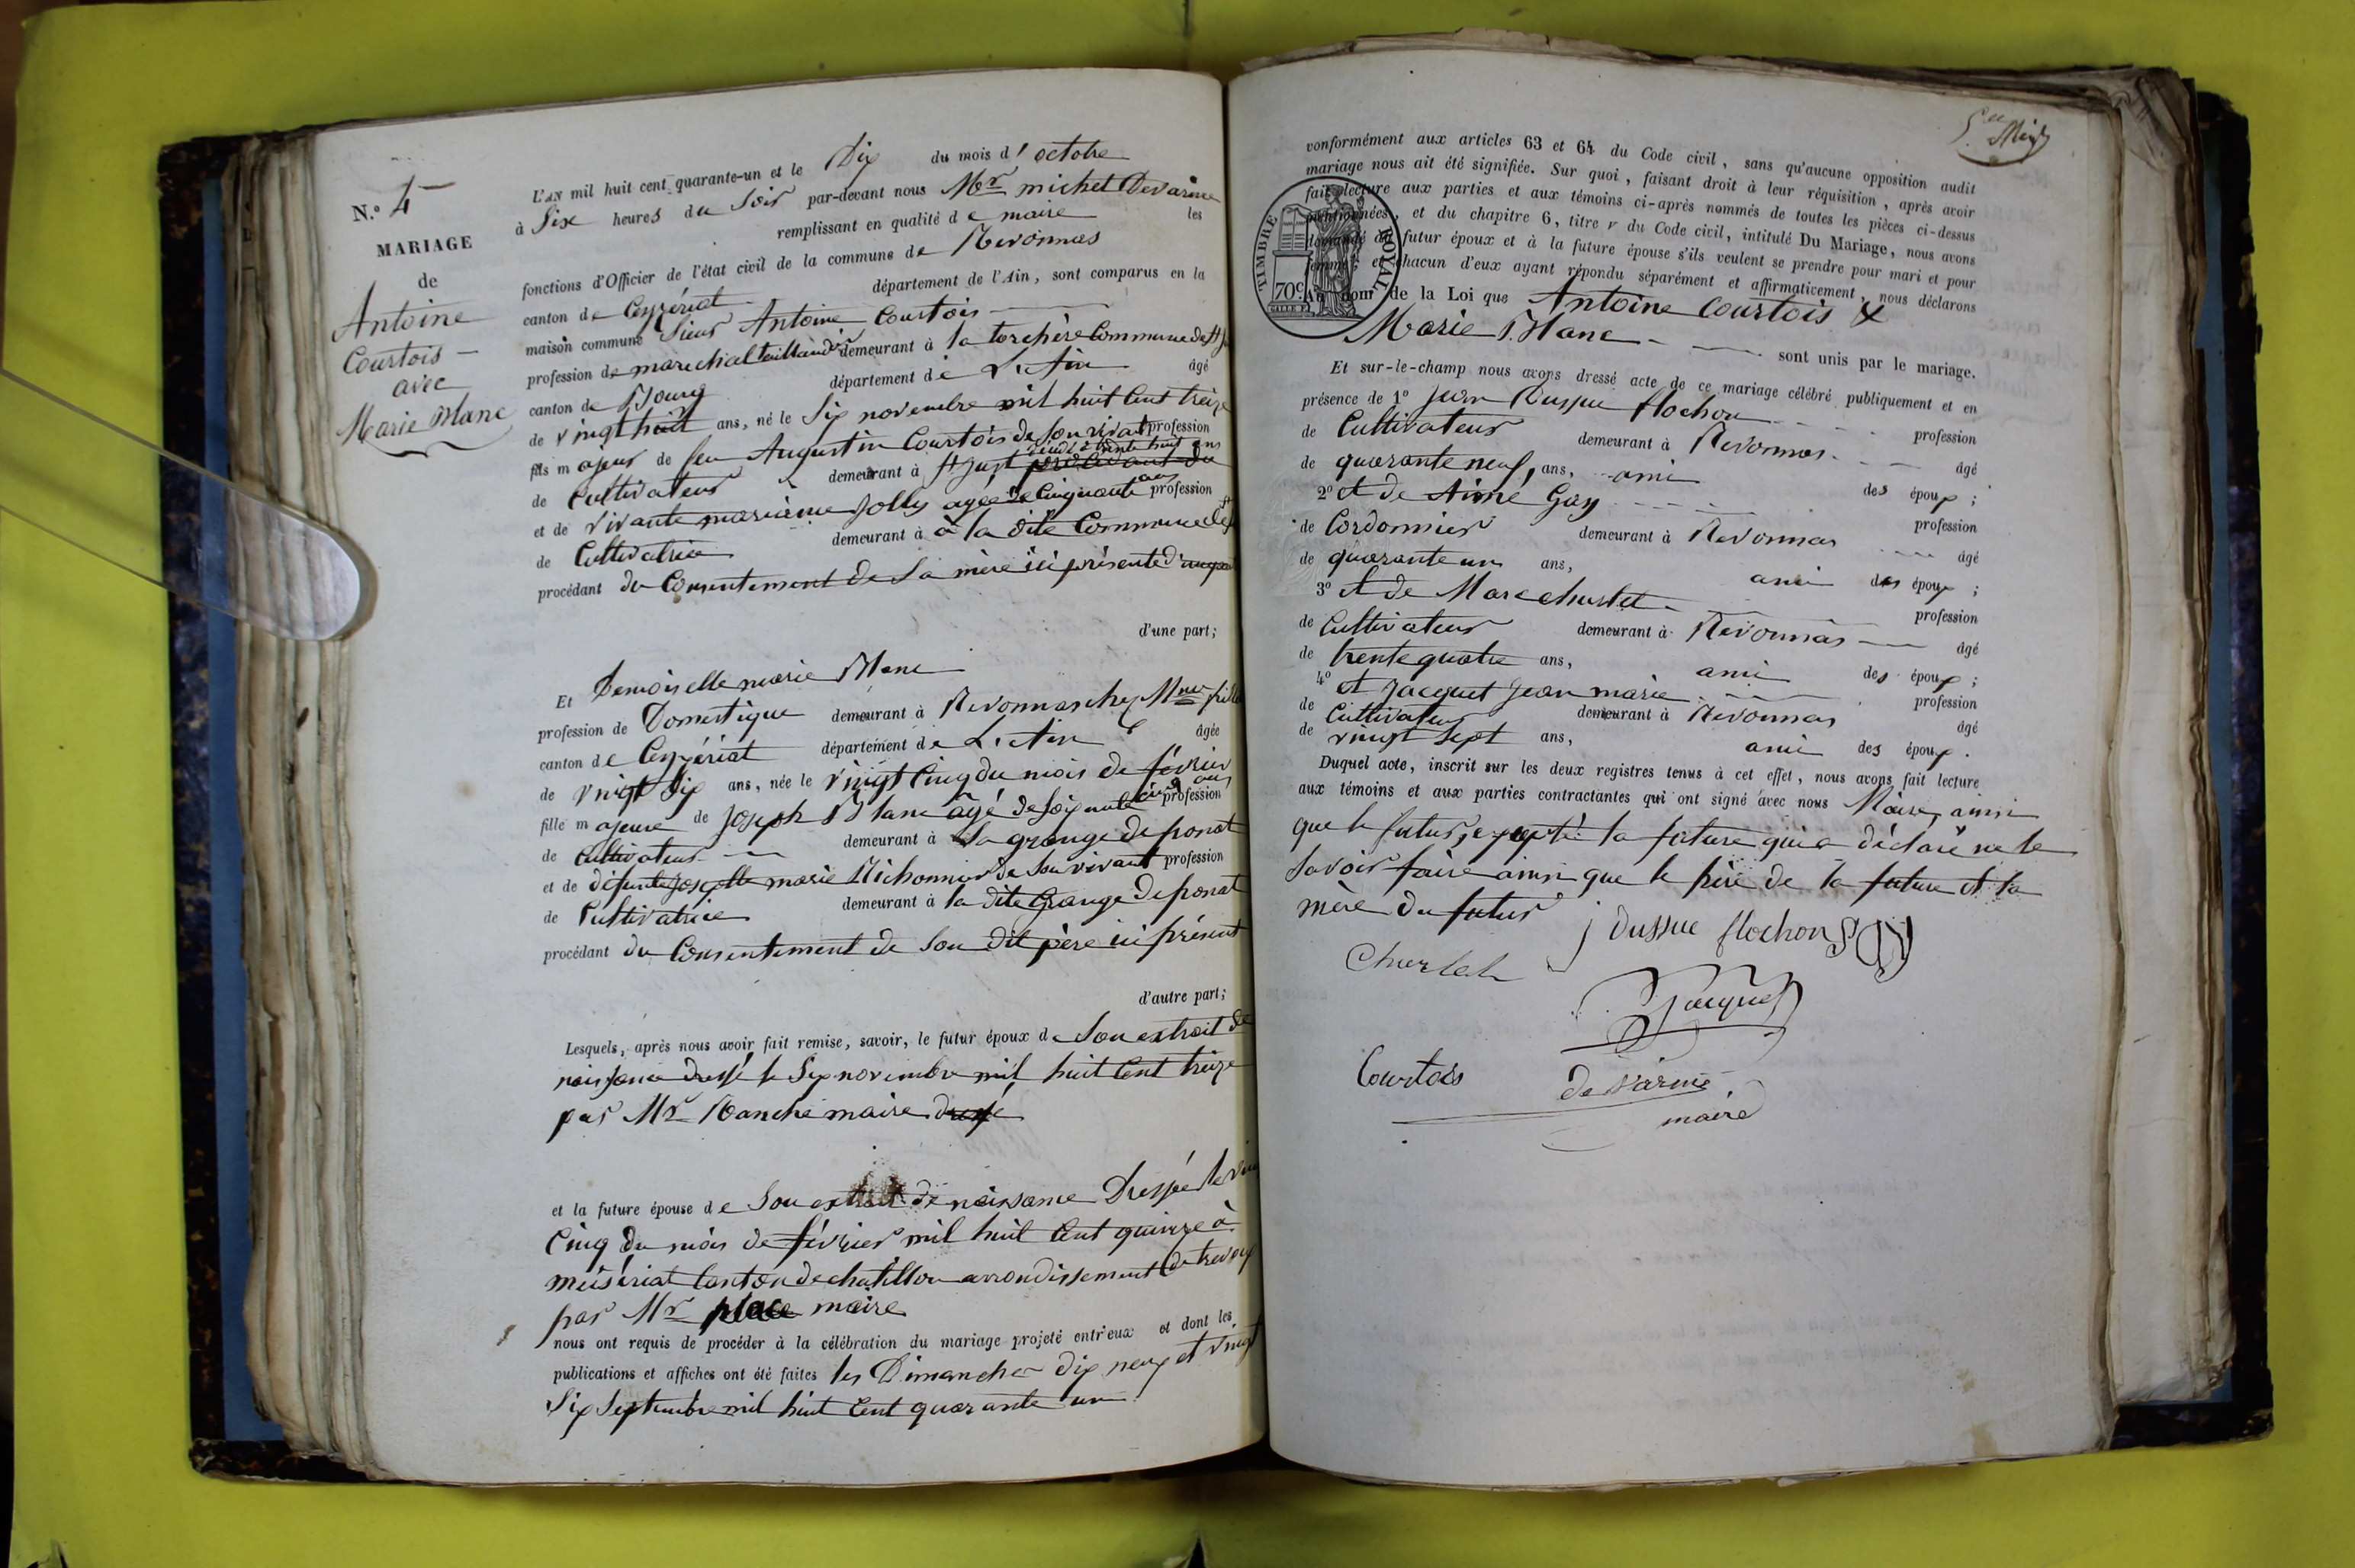 N.º 4
MARIAGE
de
Antoine
Courtois
avec
Marie Blanc
L'AN mil huit cent quarante-un et le Dix du mois d'octobre
à Six heures du Soir par-devant nous Mr michel Devarine
remplissant en qualité de maire les
fonctions d'Officier de l'état civil de la commune de Revonnas
canton de Ceyzériat département de l'Ain, sont comparus en la
maison commune Sieur Antoine Courtois
profession de marechal taillandier demeurant à la torchère Commune de St
canton de Bourg département de L'Ain âgé
de vingt huit ans, né le Six novembre mil huit Cent treize
fils majeur de feu Augustin Courtois de Son vivant profession
de Cultivateur demeurant à St just décédé à trente huit ans
et de vivante marianne Jolly agée de Cinquante ans profession
de Cultivatrice demeurant à à la dite Commune
procédant du Consentement de Sa mère ici présente
d'une part;
Et Demoiselle marie Blanc
profession de Domestique demeurant à Revonnas chez Mme
canton de Ceyzériat département de L'Ain âgée
de vingt Six ans, née le vingt Cinq du mois de février
fille majeure de Joseph Blanc âgé de Soixante cinq ans profession
de Cultivateur demeurant à La grange de ponat
et de défunte Josephte marie Michonnier de Son vivant profession
de Cultivatrice demeurant à la dite Grange de ponat
procédant du Consentement de Son dit père ici présent
d'autre part;
Lesquels, après nous avoir fait remise, savoir, le futur époux de Son extrait de
naissance dressé le Six novembre mil huit Cent treize
par Mr maire dressé
et la future épouse de Son extrait de naissance Dressée le
Cinq du mois de février mil huit Cent quinze à
meiseriat Canton de chatillon arrondissement de trevoux
par Mr place maire
nous ont requis de procéder à la célébration du mariage projeté entr'eux et dont les
publications et affiches ont été faites les Dimanches dix neuf et vingt
Six Septembre mil huit Cent quarante un
conformément aux articles 63 et 64 du Code civil, sans qu'aucune opposition audit
mariage nous ait été signifiée. Sur quoi, faisant droit à leur réquisition, après avoir
fait lecture aux parties et aux témoins ci-après nommés de toutes les pièces ci-dessus
mentionnées, et du chapitre 6, titre v du Code civil, intitulé Du Mariage, nous avons
demandé au futur époux et à la future épouse s'ils veulent se prendre pour mari et pour
femme; et chacun d'eux ayant répondu séparément et affirmativement, nous déclarons
TIMBRE ROYAL
70c.
Au nom de la Loi que Antoine Courtois &
Marie Blanc sont unis par le mariage.
Et sur-le-champ nous avons dressé acte de ce mariage célébré publiquement et en
présence de 1º Jean Dussue flochon profession
de Cultivateur demeurant à Revonnas âgé
de quarante neuf ans, ami des époux;
2º et de Aimé Gay profession
de Cordonnier demeurant à Revonnas âgé
de quarante un ans, ami des époux;
3º et de Marc chustel profession
de Cultivateur demeurant à Revonnas âgé
de trente quatre ans, ami des époux;
4º et Jacquet Jean marie profession
de Cultivateur demeurant à Revonnas âgé
de vingt Sept ans, ami des époux.
Duquel acte, inscrit sur les deux registres tenus à cet effet, nous avons fait lecture
aux témoins et aux parties contractantes qui ont signé avec nous Maire, ainsi
que le futur, excepté la future qui a déclaré ne le
Savoir faire ainsi que le père de la future et la
mère du futur
j Dussue flochon Gay
Jacquet
Courtois devarine
maire